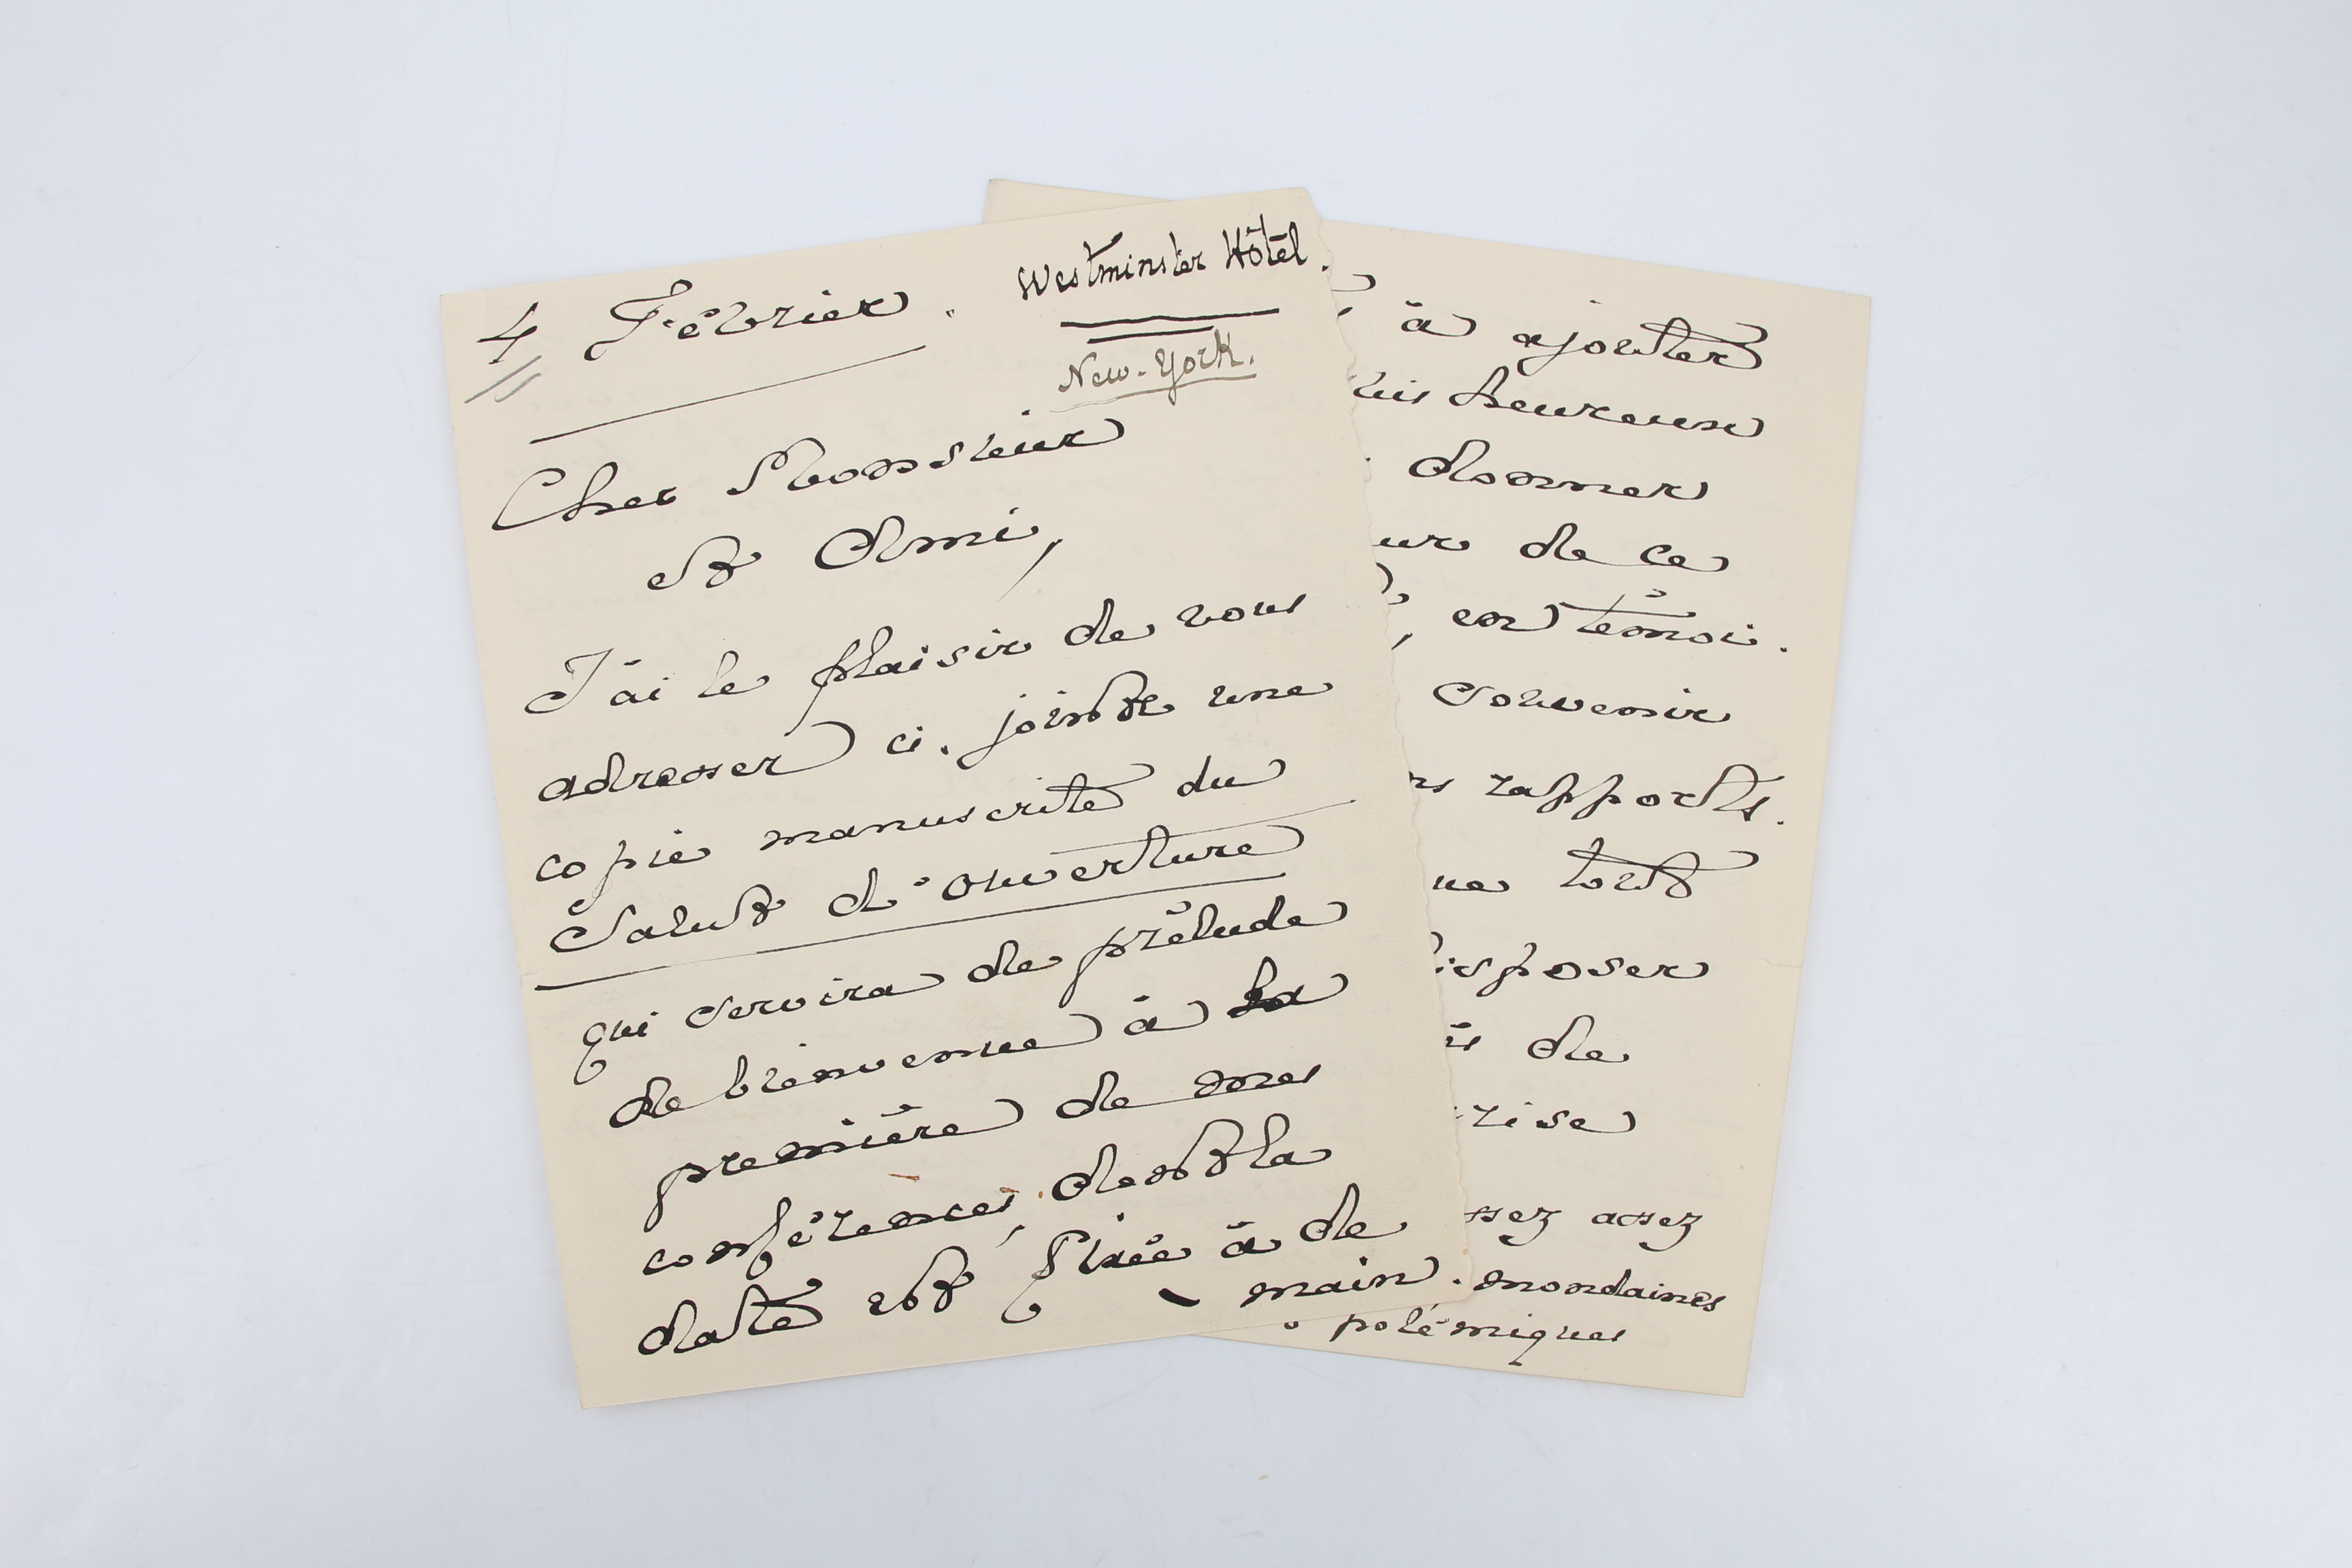 4 Février. Westminster Hôtel.
New-York.
Cher Monsieur
et Ami,
J'ai le plaisir de vous
adresser ci-jointe une
copie manuscrite du
Salut d'ouverture
qui servira de prélude
de bienvenue à la
première de mes
conférences, dont la
date est fixée à de
- main.
à ajouter
suis heureux
donner
de ce
, en témoi.
souvenir
rapports.
tout
disposer
de
assez
mondaines
polémiques